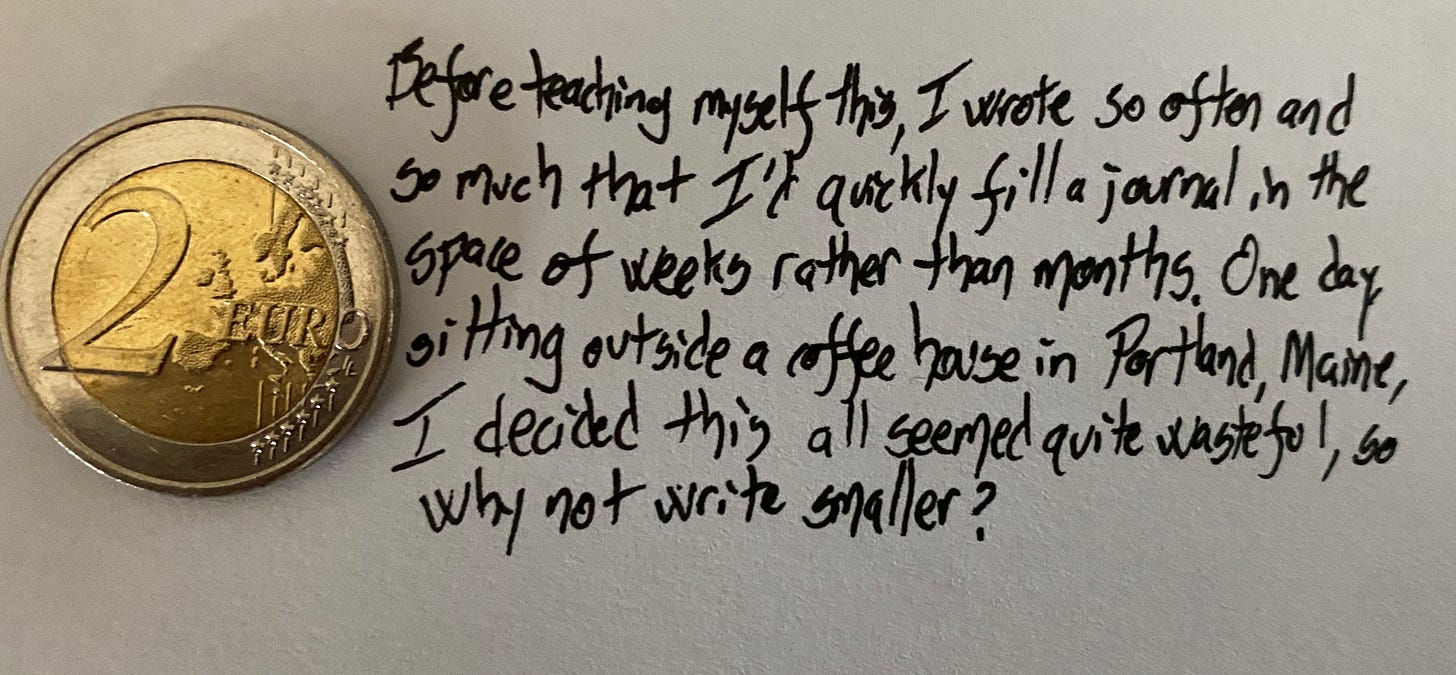 2 EURO
Before teaching myself this, I wrote so often and
so much that I'd quickly fill a journal in the
space of weeks rather than months. One day
sitting outside a coffee house in Portland, Maine,
I decided this all seemed quite wasteful, so
why not write smaller?